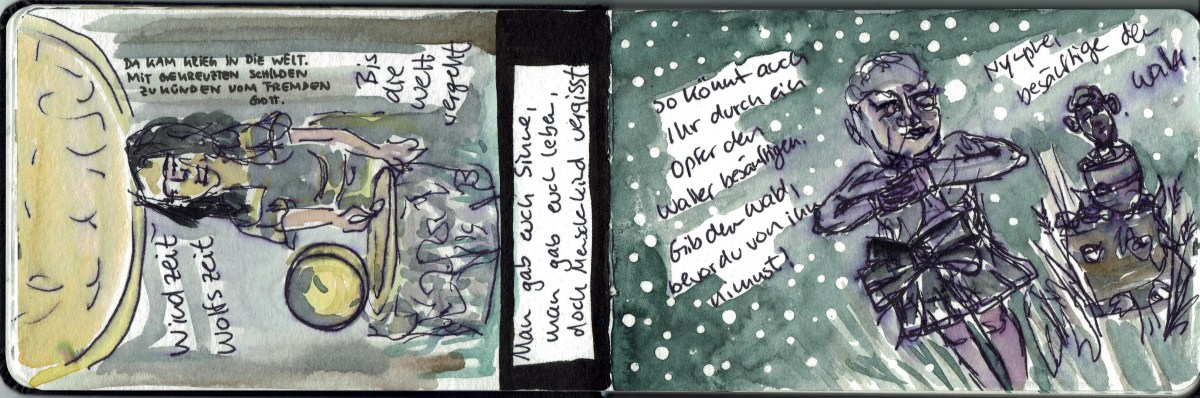 DA KAM KRIEG IN DIE WELT.
MIT GEKREUZTEN SCHILDEN
ZU KÜNDEN VOM FREMDEN
GOTT.
Bis
die
Welt
vergeht
Windzeit
Wolfszeit
Man gab euch Sinne,
man gab euch Leben,
doch Menschekind vergisst
So könnt auch
Ihr durch ein
Opfer den
Waller besänftigen.
Gib dem Wald,
bevor du von ihm
nimmst!
Nymphe,
besänftige den